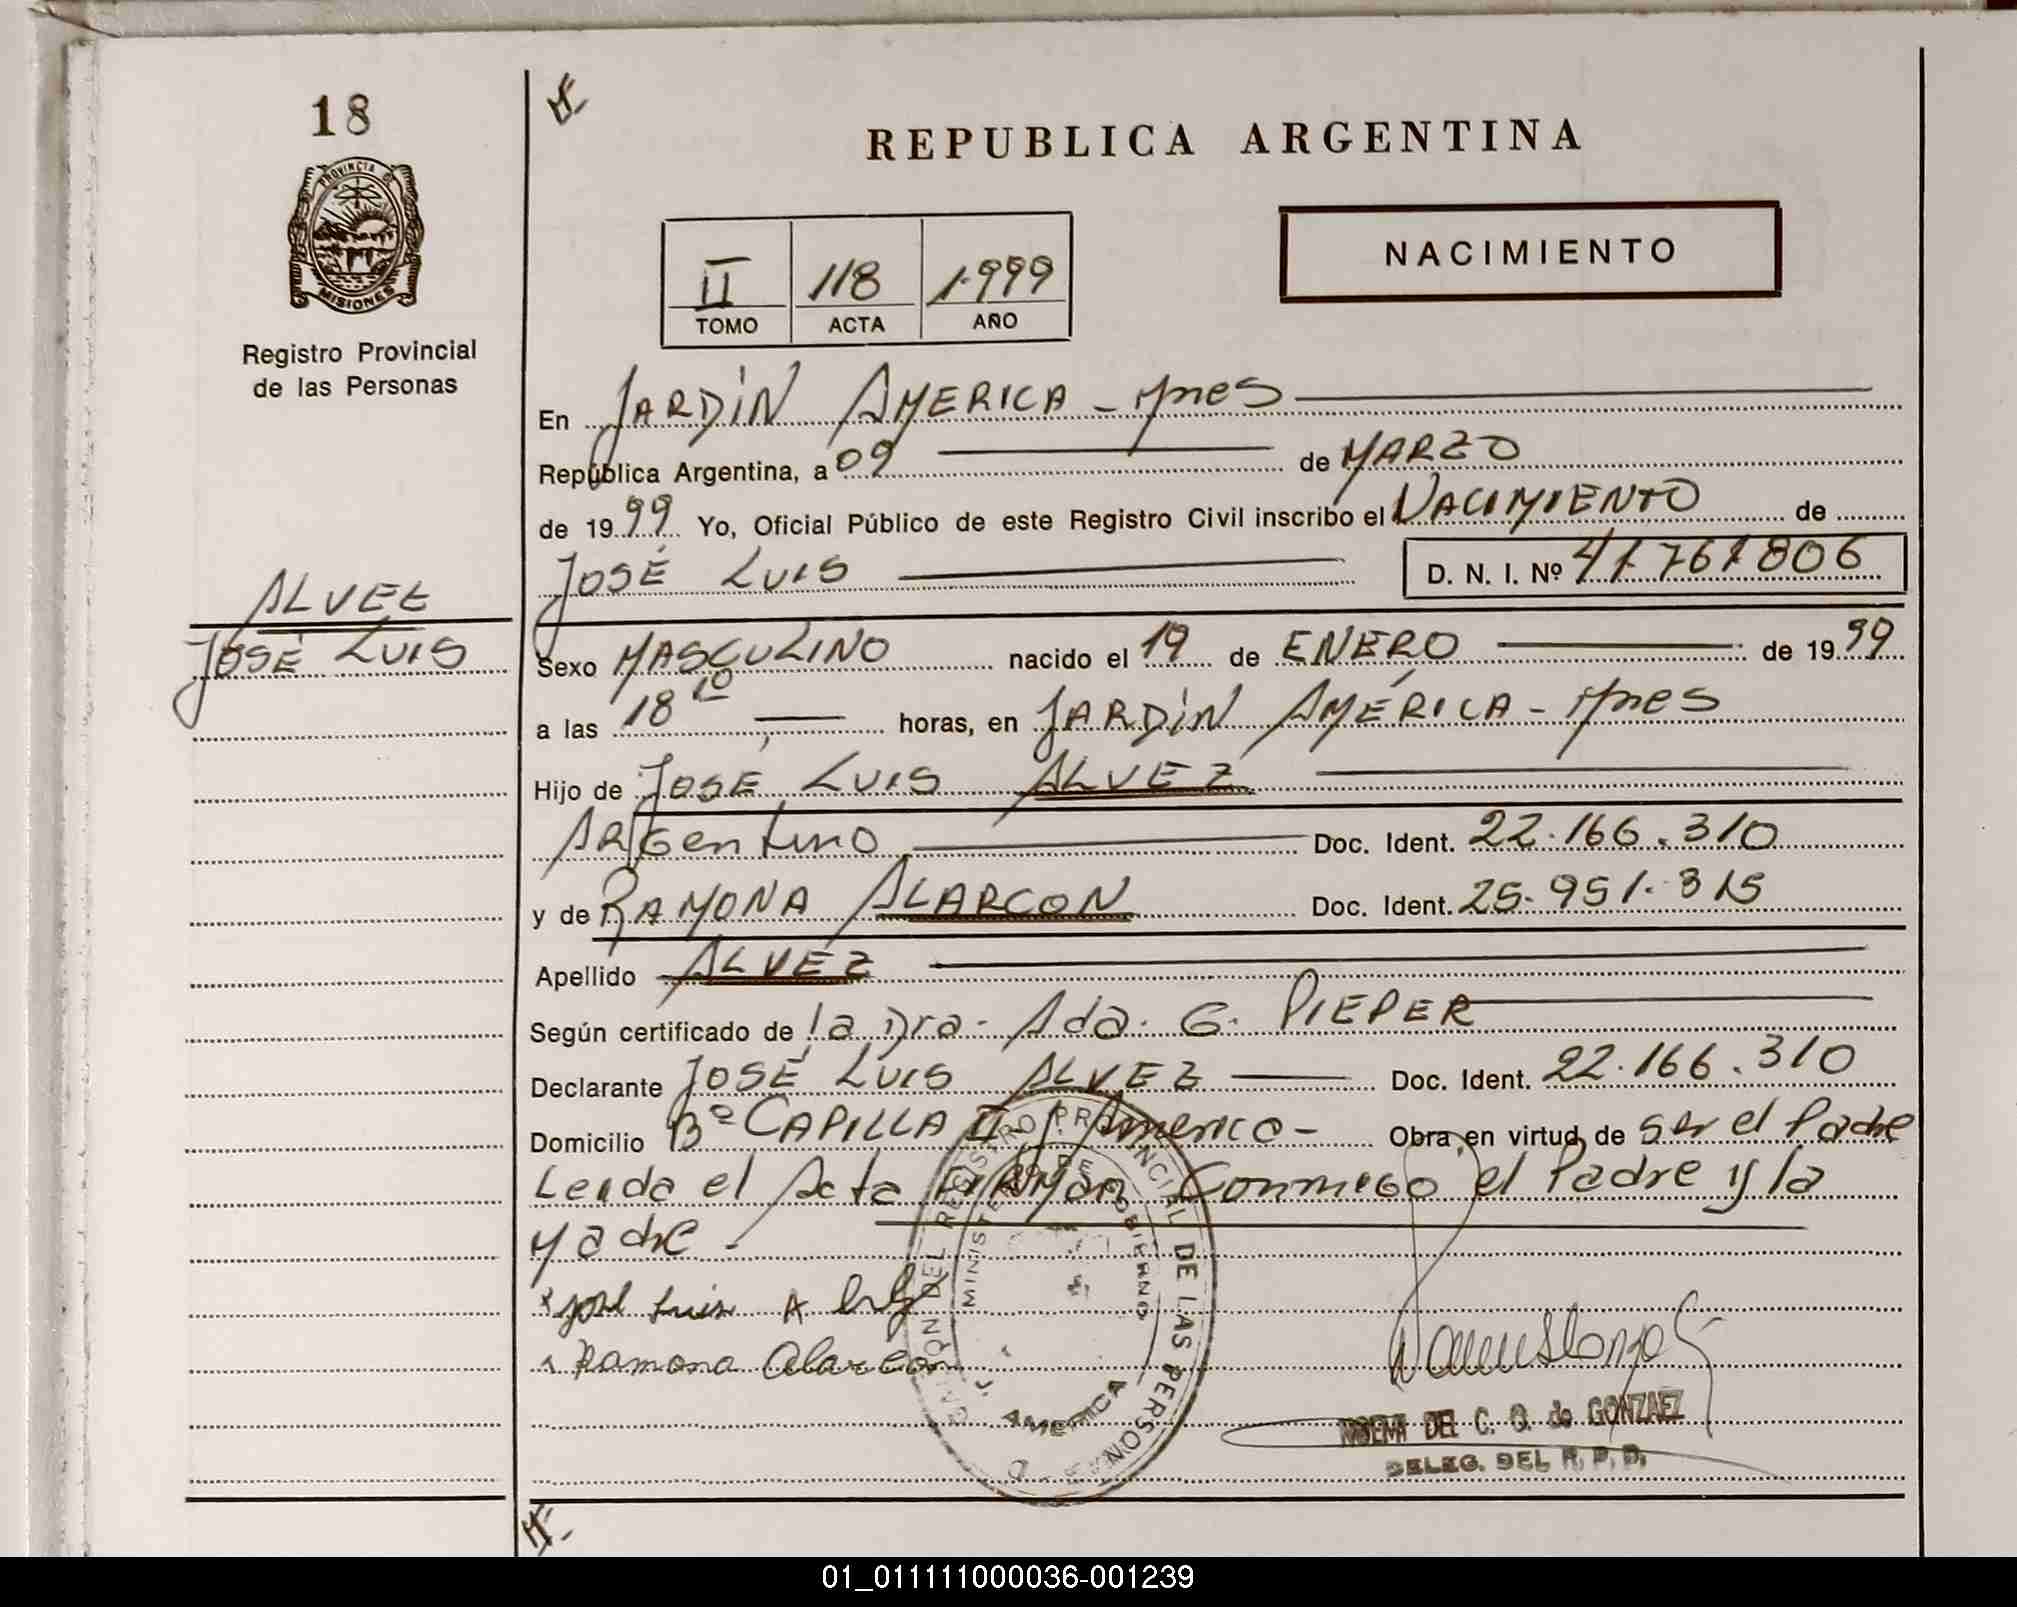 18
PROVINCIA DE
MISIONES
Registro Provincial
de las Personas
ALVEZ
JOSÉ LUIS
REPUBLICA ARGENTINA
II 118 1.999
TOMO ACTA AÑO
NACIMIENTO
En JARDIN AMERICA - Mnes
República Argentina, a 09 de MARZO
de 1999 Yo, Oficial Público de este Registro Civil inscribo el NACIMIENTO de
JOSÉ LUIS D. N. I. Nº 41761806
Sexo MASCULINO nacido el 19 de ENERO de 1999
a las 18 10 horas, en JARDIN AMÉRICA - Mnes
Hijo de JOSÉ LUIS ALVEZ
Argentino Doc. Ident. 22.166.310
y de RAMONA ALARCON Doc. Ident. 25.951.315
Apellido ALVEZ
Según certificado de la Dra. Ada. G. PIEPER
Declarante JOSÉ LUIS ALVEZ Doc. Ident. 22.166.310
Domicilio Bº CAPILLA II J. America - Obra en virtud de ser el Padre
Leida el Acta FIRMAN Conmigo el Padre y la
Madre -
x José Luis Alvez
x Ramona Alarcon
REGISTRO PROVINCIAL DE LAS PERSONAS
MINISTERIO DE GOBIERNO
AMERICA
NOEMI DEL C. G. de GONZALEZ
DELEG. DEL R. P. P.
01_011111000036-001239